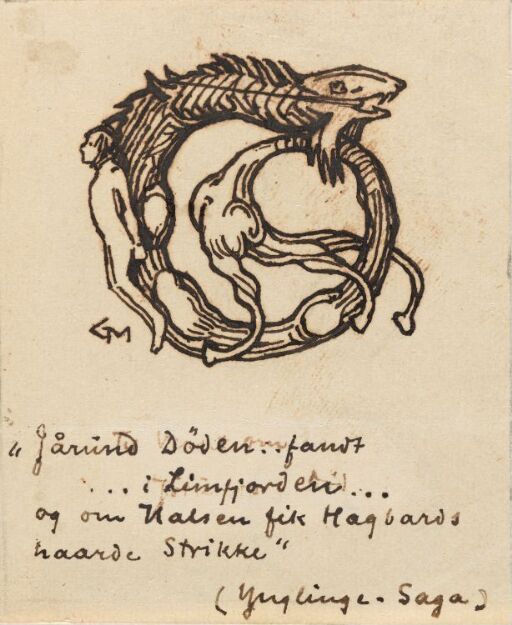 GM
„ Jårund Döden.. fandt
... i Limfjorden...
og om Halsen fik Hagbards
haarde Strikke“
(Ynglinge-Saga)